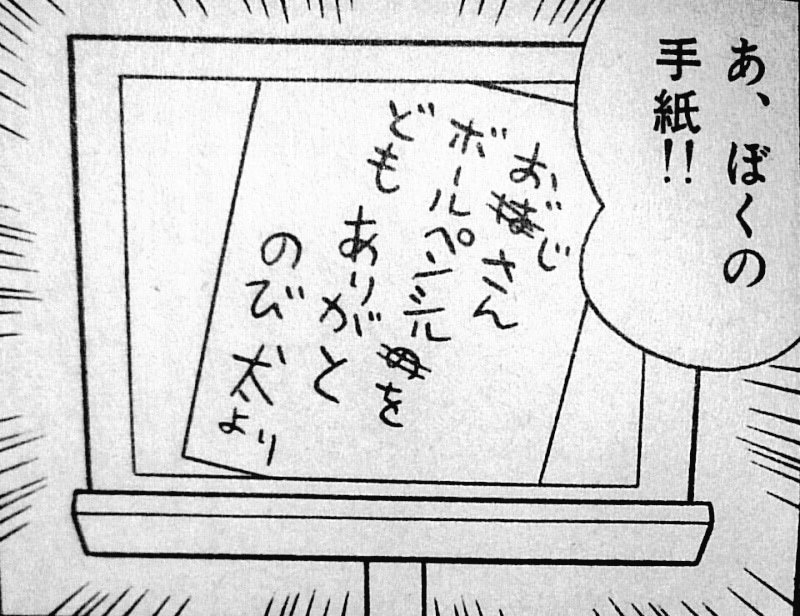 あ、ぼくの
手紙!!
おじさん
ボールペンシルを
どもありがと
のび犬より